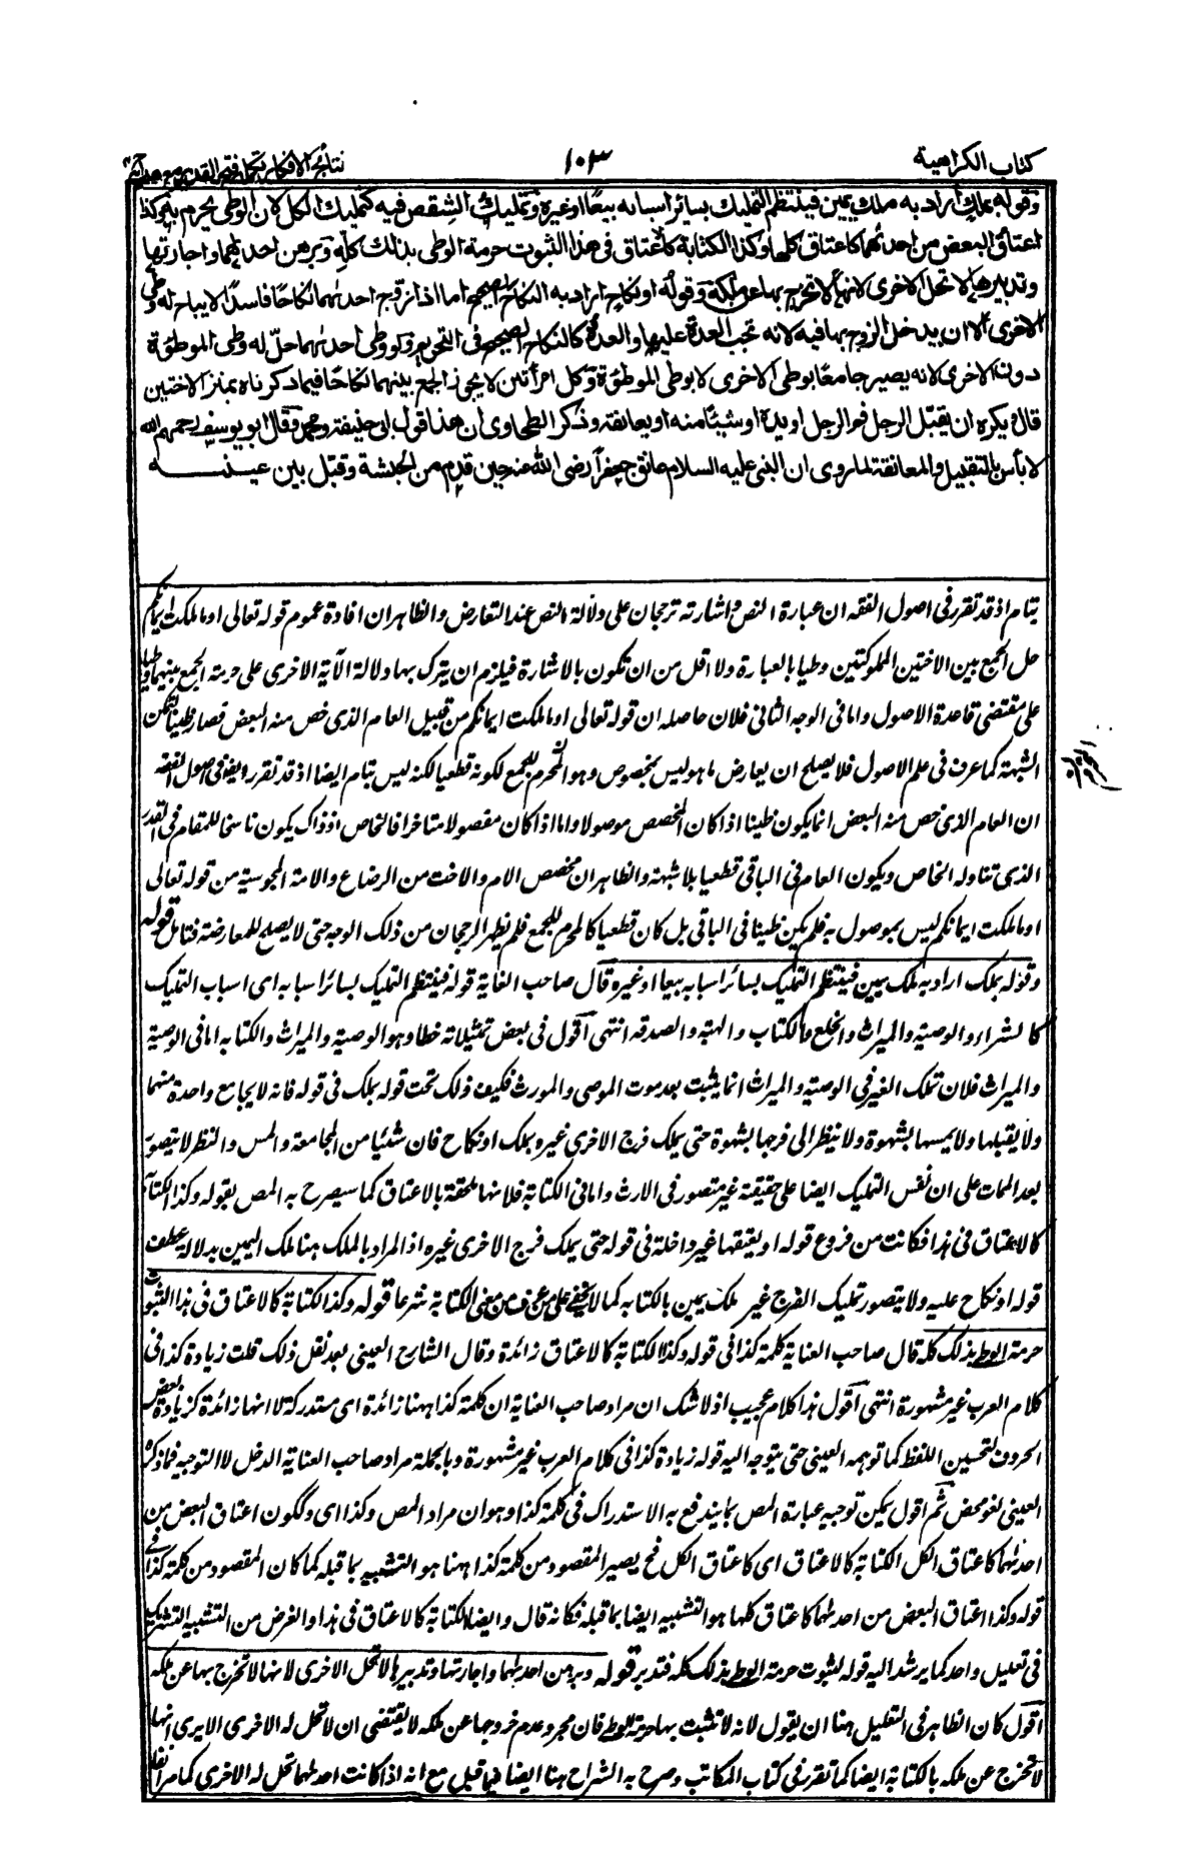 كتاب الكراهية
١٠٣
نتائج الافكار تكملة فتح القدير مع هداية
وقوله بملك اراد به ملك يمين فينتظم التمليك بسائر اسبابه بيعا او غيره وتمليك الشقص فيه كتمليك الكل لان الوطى يحرم به وكذا
اعتاق البعض من احدلهما كاعتاق كلها وكذا الكتابة كالاعتاق فى هذا الثبوت حرمة الوطى بذلك كله وبرهن احدلهما واجارتها
وتدبيرها لا تحل الاخرى لانها لا تخرج بها عن ملكه وقوله او نكاح اراد به النكاح الصحيح اما اذا زوج احدلهما نكاحا فاسدا لا يباح له وطى
الاخرى الا ان يدخل الزوج بها فيه لانه تجب العدة عليها والعدة كالنكاح الصحيح فى التحريم ولو وطى احدلهما حل له وطى الموطوءة
دون الاخرى لانه يصير جامعا بوطى الاخرى لا بوطى الموطوءة وكل امرأتين لا يجوز الجمع بينهما نكاحا فيما ذكرناه بمنزلة الاختين
قال ويكره ان يقبل الرجل فم الرجل او يده او شيئا منه او يعانقه وذكر الطحاوى ان هذا قول ابى حنيفة ومحمد وقال ابو يوسف رحمهم الله
لا بأس بالتقبيل والمعانقة لما روى ان النبى عليه السلام عانق جعفرا رضى الله عنه حين قدم من الحبشة وقبل بين عينيه
بتام اذ قد تقرر فى اصول الفقه ان عبارة النص واشارته ترجحان على دلالة النص عند التعارض والظاهر ان افادة عموم قوله تعالى او ما ملكت ايمانكم
حل الجمع بين الاختين المملوكتين وطيا بالعبارة ولا اقل من ان تكون بالاشارة فيلزم ان يترك بها دلالة الآية الاخرى على حرمة الجمع بينهما وطيا
على مقتضى قاعدة الاصول واما فى الوجه الثانى فلان حاصله ان قوله تعالى او ما ملكت ايمانكم من قبيل العام الذى خص منه البعض فصار ظنيا لتمكن
الشبهة كما عرف فى علم الاصول فلا يصلح ان يعارض ما هو ليس بمخصوص وهو المحرم للجمع لكونه قطعيا لكنه ليس بتام ايضا اذ قد تقرر ايضا فى اصول الفقه
ان العام الذى خص منه البعض انما يكون ظنيا اذا كان المخصص موصولا واما اذا كان مفصولا متاخرا فالخاص اذ ذاك يكون ناسخا للمقام فى القدر
الذى تناوله الخاص ويكون العام فى الباقى قطعيا بلا شبهة والظاهر ان مخصص الام والاخت من الرضاع والامة المجوسية من قوله تعالى
او ما ملكت ايمانكم ليس بموصول به فلم يكن ظنيا فى الباقى بل كان قطعيا كالمحرم للجمع فلم يظهر الرجحان من ذلك الوجه حتى لا يصلح للمعارضة فتامل قوله
وقوله بملك اراد به ملك يمين فينتظم التمليك بسائر اسبابه بيعا او غيره قال صاحب الغاية قوله فينتظم التمليك بسائر اسبابه اى اسباب التمليك
كالشراء والوصية والميراث والخلع والكتاب والهبة والصدقه انتهى اقول فى بعض تمثيلاته خطا وهو الوصية والميراث والكتابه اما فى الوصية
والميراث فلان تملك الغير فى الوصية والميراث انما يثبت بعد موت الموصى والمورث فكيف ذلك تحت قوله بملك فى قوله فانه لا يجامع واحدة منهما
ولا يقبلها ولا يمسها بشهوة ولا ينظر الى فرجها بشهوة حتى يملك فرج الاخرى غيره بملك او نكاح فان شيئا من المجامعة والمس والنظر لا يتصور
بعد الممات على ان نفس التمليك ايضا على حقيقته غير متصور فى الارث واما فى الكتابة فلانها ملحقة بالاعتاق كما سيصرح به المص بقوله وكذا الكتابة
كالاعتاق فى هذا فكانت من فروع قوله او يعتقها غير داخلة فى قوله حتى يملك فرج الاخرى غيره اذ المراد بالملك ههنا ملك اليمين بدلالة عطف
قوله او نكاح عليه ولا يتصور تمليك الفرج غير ملك يمين بالكتابه كما لا يخفى على من عرف معنى الكتابة شرعا قوله وكذا الكتابة كالاعتاق فى هذا الثبوت
حرمة الوطى بذلك كله قال صاحب العناية كلمة كذا فى قوله وكذا الكتابة كالاعتاق زائدة وقال الشارح العينى بعد نقل ذلك قلت زيادة كذا فى
كلام العرب غير مشهورة انتهى اقول هذا كلام عجيب اذ لا شك ان مراد صاحب العناية ان كلمة كذا ههنا زائدة اى مستدركة لا انها زائدة كزيادة بعض
الحروف لتحسين اللفظ كما توهمه العينى حتى يتوجه اليه قوله زيادة كذا فى كلام العرب غير مشهورة وبالجملة مراد صاحب العناية الدخل لا التوجيه فما ذكره
العينى لغو محض ثم اقول يمكن توجيه عبارة المص بما يندفع به الاستدراك فى كلمة كذا وهو ان مراد المص وكذا اى ولكون اعتاق البعض من
احدلهما كاعتاق الكل الكتابة كالاعتاق اى كاعتاق الكل فح يصير المقصود من كلمة كذا ههنا هو التشبيه بما قبله كما كان المقصود من كلمة كذا فى
قوله وكذا اعتاق البعض من احدلهما كاعتاق كلها هو التشبيه ايضا بما قبله فكانه قال وايضا الكتابة كالاعتاق فى هذا والغرض من التشبيه التشريك
فى تعليل واحد كما يرشد اليه قوله لثبوت حرمة الوطى بذلك كله فتدبر قوله وبرهن احدلهما واجارتها وتدبيرها لا تحل الاخرى لانها لا تخرج بها عن ملكه
اقول كان الظاهر فى التعليل ههنا ان يقول لانه لا تثبت بها حرمة الوطى فان مجرد عدم خروجها عن ملكه لا يقتضى ان لا تحل له الاخرى الا يرى انها
لا تخرج عن ملكه بالكتابة ايضا كما تقرر فى كتاب المكاتب وصرح به الشراح ههنا ايضا فيما قبل مع انه اذا كانت احدلهما تحل له الاخرى كما مر انفا